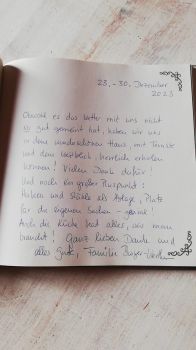 23.-30. Dezember
2023
Obwohl es das Wetter mit uns nicht
so gut gemeint hat, haben wir uns
in dem wunderschönen Haus, mit Tennis
und dem Weitblick, herrlich erholen
können! Vielen Dank dafür!
Und noch ein großer Pluspunkt:
Haken und Stühle als Ablage, Platz
für die eigenen Sachen - genial!
Auch die Küche hat alles, was man
braucht! Ganz lieben Dank und
alles Gute, Familie